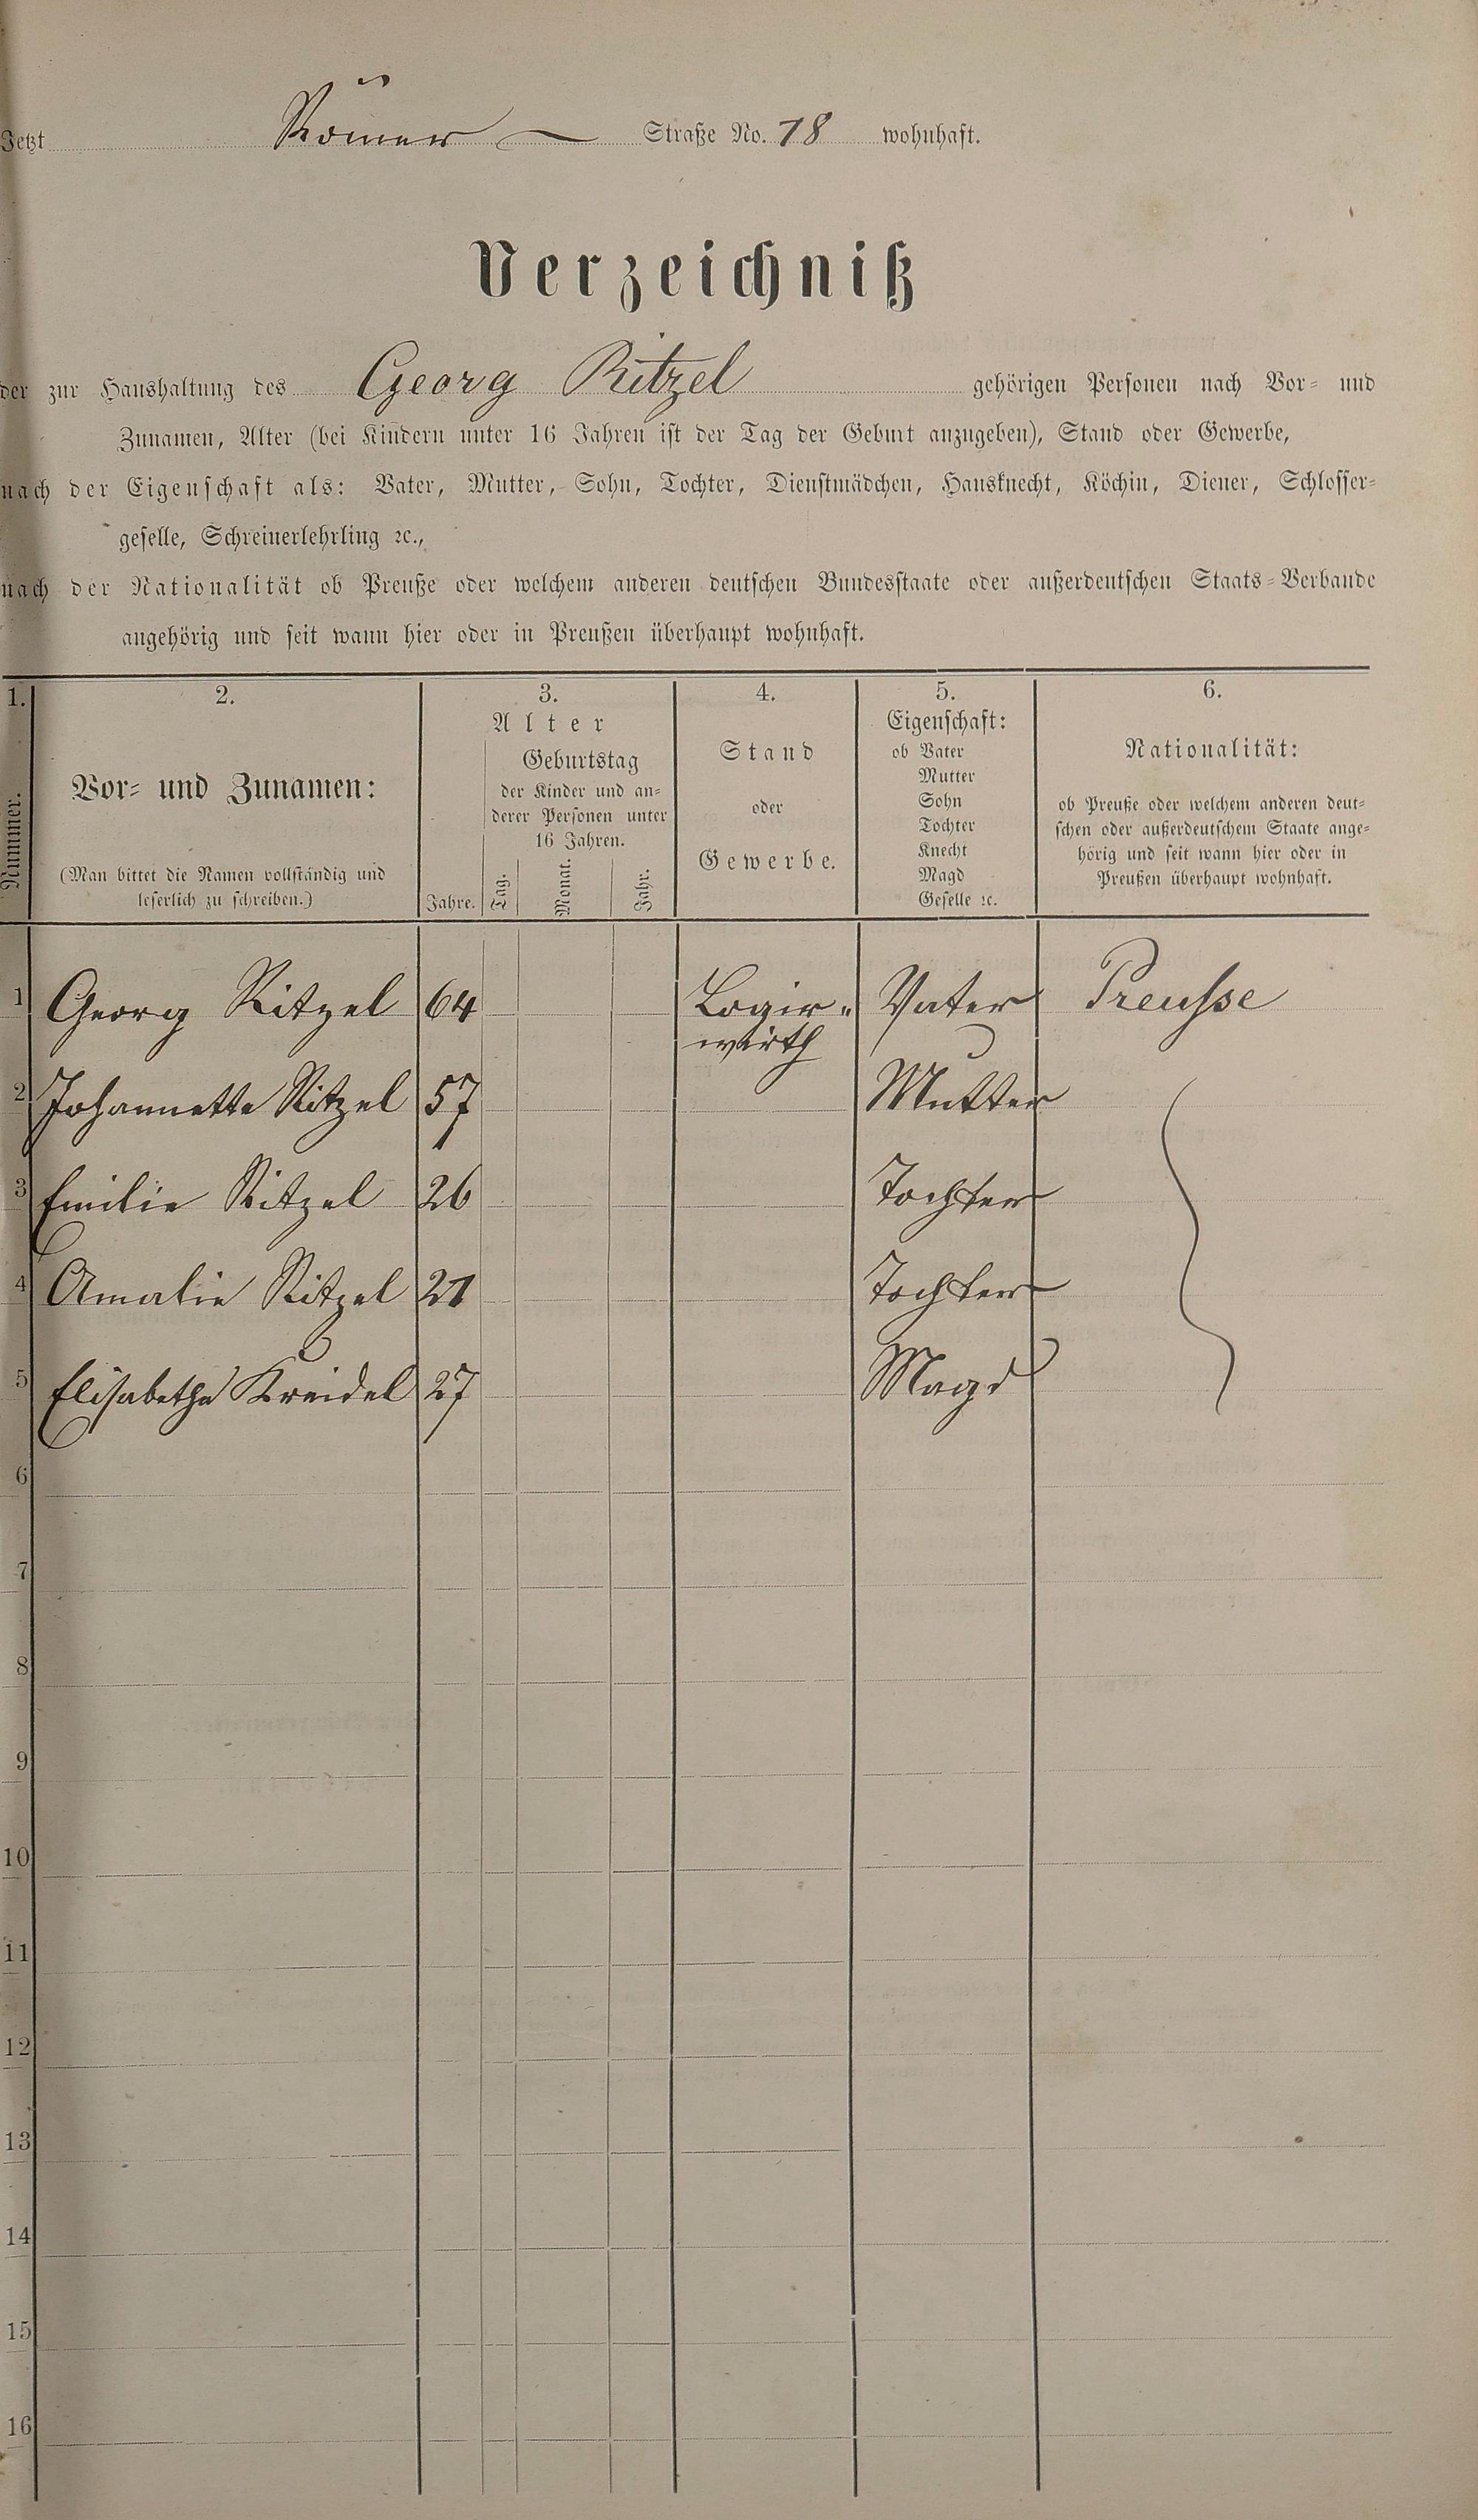 Jetzt Römer- Straße No. 18 wohnhaft.
Verzeichniß
der zur Haushaltung des Georg Ritzel gehörigen Personen nach Vor- und
Zunamen, Alter (bei Kindern unter 16 Jahren ist der Tag der Geburt anzugeben), Stand oder Gewerbe,
nach der Eigenschaft als: Vater, Mutter, Sohn, Tochter, Dienstmädchen, Hausknecht, Köchin, Diener, Schlosser-
geselle, Schreinerlehrling ꝛc.,
nach der Nationalität ob Preuße oder welchem anderen deutschen Bundesstaate oder außerdeutschen Staats-Verbande
angehörig und seit wann hier oder in Preußen überhaupt wohnhaft.
1. 2. 3. 4. 5. 6.
Nummer.
Vor- und Zunamen:
(Man bittet die Namen vollständig und
leserlich zu schreiben.)
Alter
Jahre.
Geburtstag
der Kinder und an-
derer Personen unter
16 Jahren.
Tag. Monat. Jahr.
Stand
oder
Gewerbe.
Eigenschaft:
ob Vater
Mutter
Sohn
Tochter
Knecht
Magd
Geselle ꝛc.
Nationalität:
ob Preuße oder welchem anderen deut-
schen oder außerdeutschem Staate ange-
hörig und seit wann hier oder in
Preußen überhaupt wohnhaft.
1 Georg Ritzel 64 Logir- Vater Preusse
wirth
2 Johannette Ritzel 57 Mutter
3 Emilie Ritzel 26 Tochter
4 Amalie Ritzel 21 Tochter
5 Elisabetha Kreidel 27 Magd
6
7
8
9
10
11
12
13
14
15
16